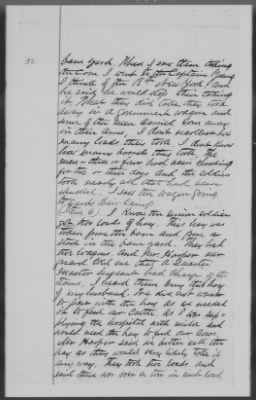 32.
barn yard. When I saw them taking
the corn I went to the Captain Young
I think of the 15th New York and
he said he would stop their taking
it. What they did take, they took
away in a government wagon and
some of the men carried corn away
in their arms, I don't recollect how
many loads they took. I don't know
how many bonds they took. The
men - three or four had been husking
for two or three days and the soldiers
took nearly all that had been
shucked. I saw the wagon going
towards their camp.
(Item 6) I know the Union soldiers
got two loads of hay. This hay was
taken from the barn and from a
stack in the barn yard. They had
two wagons and Mr Harper our
guard told me that a Quarter
Master Sergeant had charge of the
teams. I heard them buy that hay
of my husband. He did not want
to part with the hay as we needed
it to feed our Cattle. As I was sup-
plying the hospital with milk and
would need the hay to feed our Cows.
Mr Harper said we better sell the
hay as they would very likely take it
any way. They took two loads and
said there was over a ton in each load